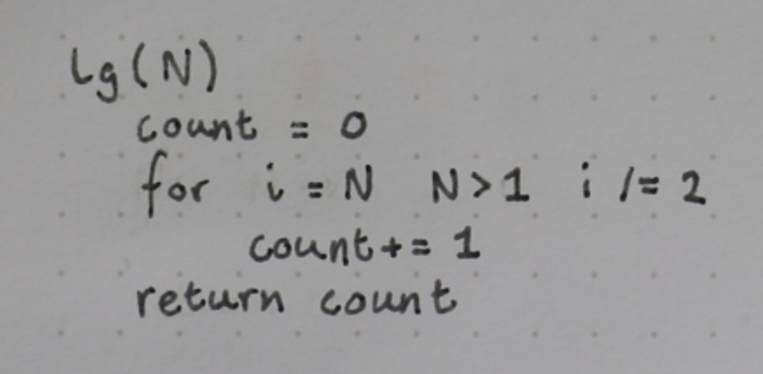 Lg(N)
count = 0
for i = N N > 1 i /= 2
count += 1
return count